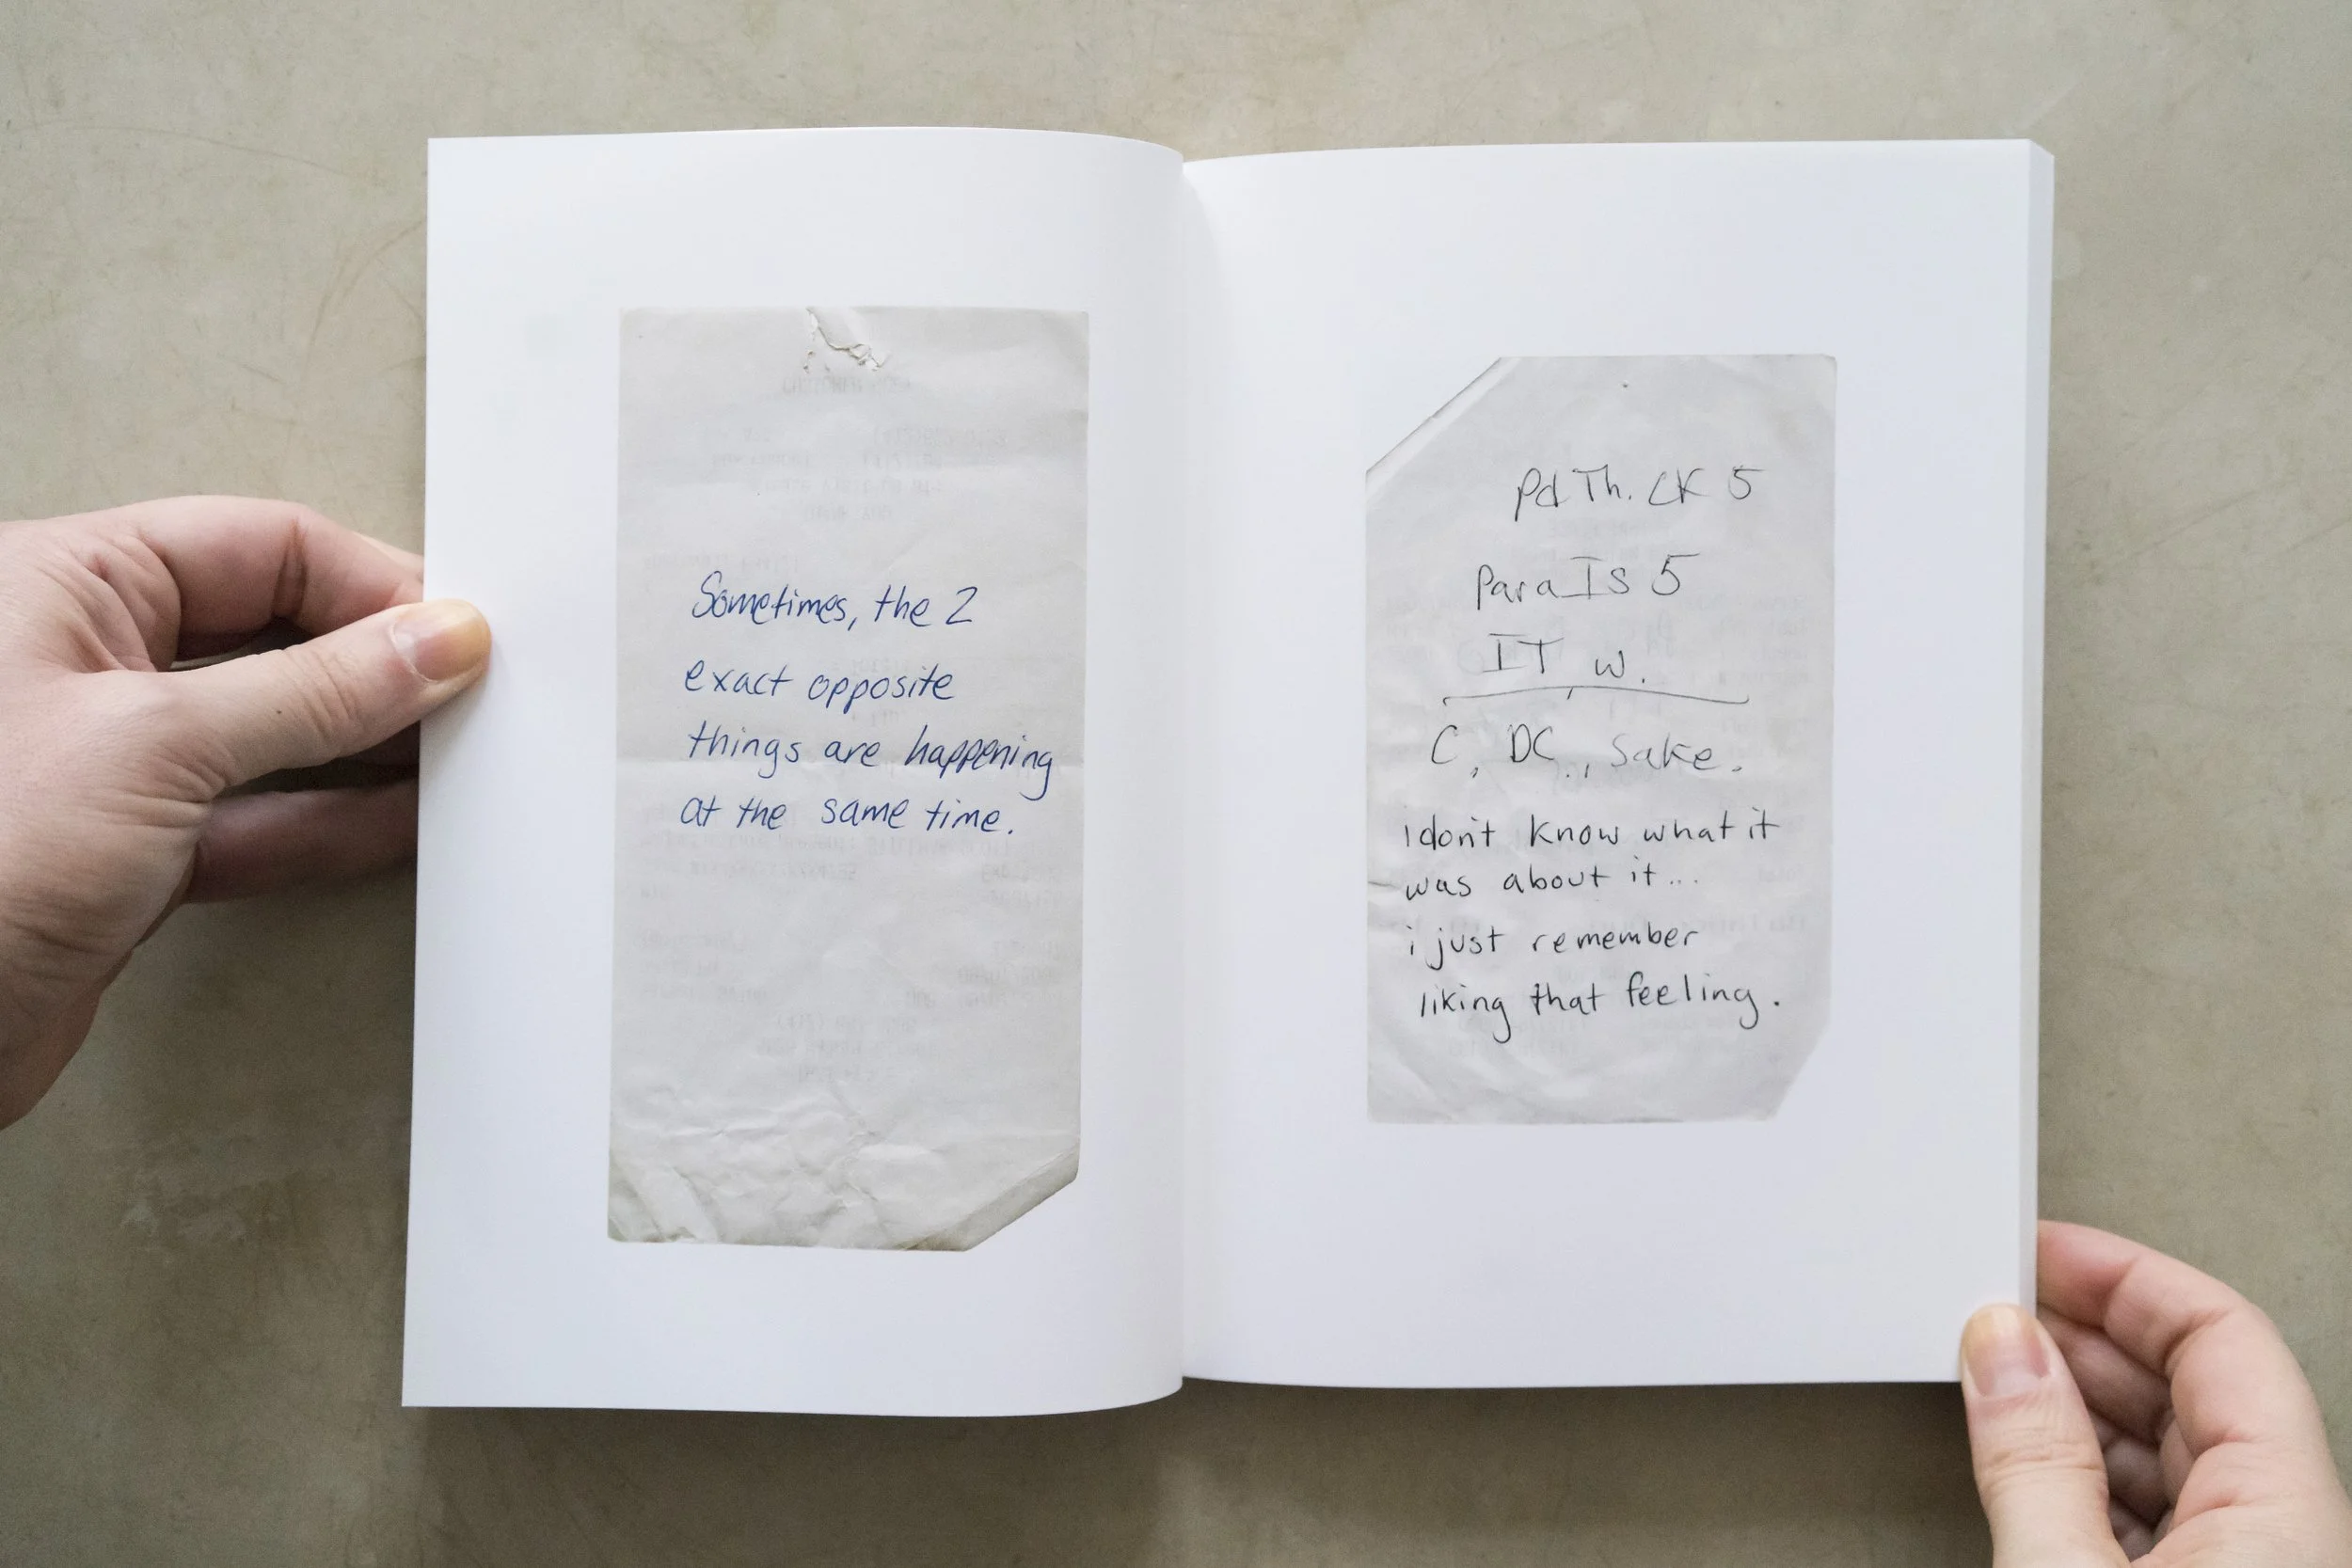 Sometimes, the 2
exact opposite
things are happening
at the same time.
Pd Th. CK 5
Para Is 5
IT w.
C, DC., Sake.
i don't know what it
was about it...
i just remember
liking that feeling.